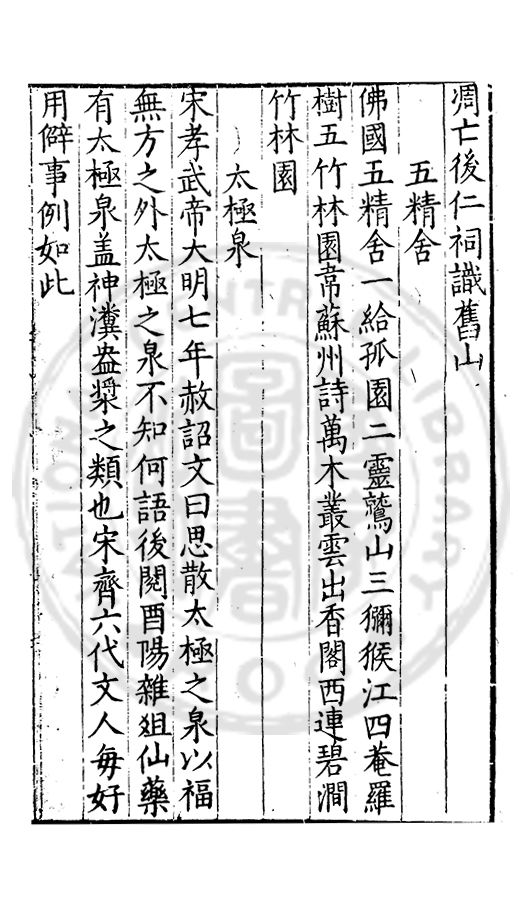 凋亡後仁祠識舊山
五精舍
佛國五精舍一給孤園二靈鷲山三獼猴江四菴羅
樹五竹林園韋蘇州詩萬木叢雲出香閣西連碧澗
竹林園
太極泉
宋孝武帝大明七年赦詔文曰思散太極之泉以福
無方之外太極之泉不知何語後閱酉陽雜俎仙藥
有太極泉盖神瀵盎漿之類也宋齊六代文人每好
用僻事例如此